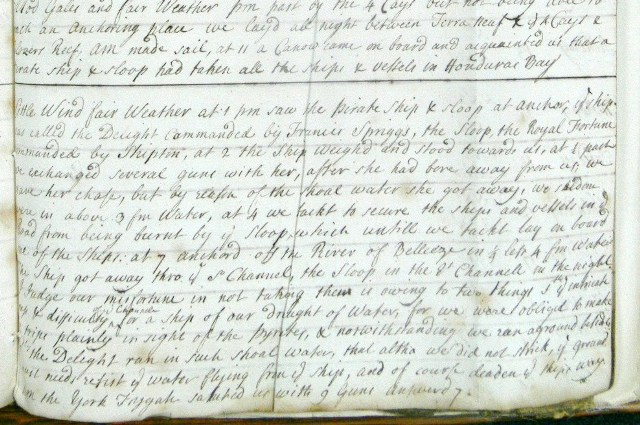 Mod Gales and fair Weather pm past by the 4 Cays but not being able to
an Anchoring place we lay'd all night between Terra Neuf & Cays &
Reef. AM made sail, at 11 a Canow came on board and acquainted us that a
ship & sloop had taken all the ships & vessels in Honduras Bay
Little Wind fair Weather at 1 pm saw the Pirate Ship & sloop at anchor, ye ship
was called the Delight commanded by Francis Spriggs, the Sloop, the Royal Fortune
commanded by Shipton, at 2 the Ship weigh'd and stood towards us, at 1 past
we exchanged several guns with her, after she had bore away from us, we
gave her chase, but by reason of the shoal water she got away, we seldom
were in above 3 fm Water, at 4 we tackt to secure the ships and vessels in ye
road from being burnt by ye Sloop which untill we tackt lay on board
one of the Ships: at 7 anchord off the River of Belleeze in ¼ less 4 fm Water
the Ship got away thro ye So Channel, the Sloop in the Channell in the night
I judge our misfortune in not taking them is owing to two things intricate
& difficulty Channels for a ship of our draught of Water, for we were obliged to make
trips plainly in sight of the Pyrates, & notwithstanding we ran aground
the Delight ran in such shoal water, that altho we did not strike, ye ground
must needs resist ye water flying from ye ship, and of course deaden ye ships way
the York saluted us with 9 Guns answerd 7.